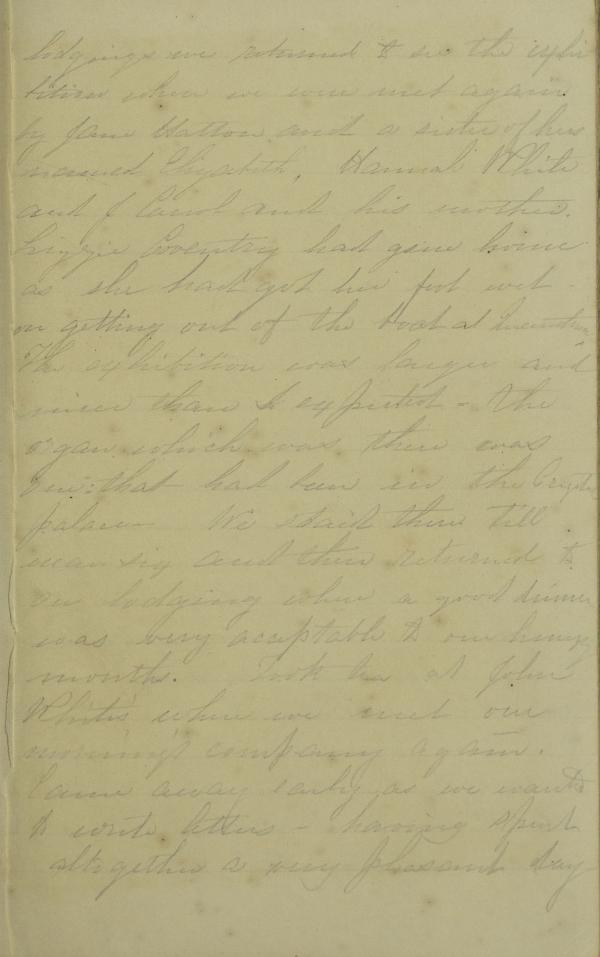 lodgings we returned to see the exhi
bition where we were met again
by Jane Hatton and a sister of hers
named Elizabeth, Hannah White
and J Carrol and his mother.
Lizzie Coventry had gone home
as she had got her foot wet -
on getting out of the boat at
The exhibition was larger and
nicer than I expected - The
organ which was there was
one that had been in the Crystal
palace - We staid there till
near six and then returned to
our lodging where a good dinner
was very acceptable to our hungry
mouths. Took tea at John
White's where we met our
morning's company again.
Came away early as we wanted
to write letters - having spent
altogether a very pleasant day